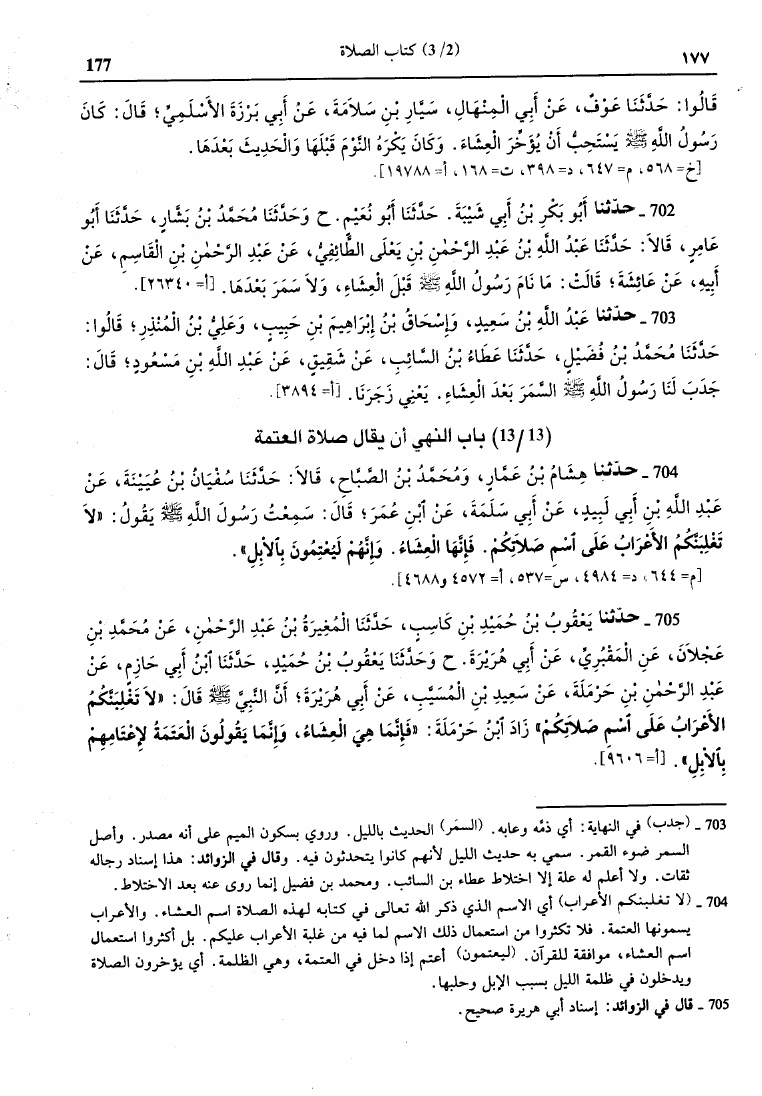 ١٧٧ (3/2) كتاب الصلاة 177
قَالُوا: حَدَّثَنَا عَوْفٌ، عَنْ أَبِي الْمِنْهَالِ، سَيَّارِ بْنِ سَلاَمَةَ، عَنْ أَبِي بَرْزَةَ الأَسْلَمِيِّ؛ قَالَ: كَانَ
رَسُولُ اللَّهِ ﷺ يَسْتَحِبُّ أَنْ يُؤَخِّرَ الْعِشَاءَ. وَكَانَ يَكْرَهُ النَّوْمَ قَبْلَهَا وَالْحَدِيثَ بَعْدَهَا.
[خ= ٥٦٨، م= ٦٤٧، د= ٣٩٨، ت= ١٦٨، أ= ١٩٧٨٨].
702 ـ حدّثنا أَبُو بَكْرِ بْنُ أَبِي شَيْبَةَ. حَدَّثَنَا أَبُو نُعَيْمٍ. ح وَحَدَّثَنَا مُحَمَّدُ بْنُ بَشَّارٍ، حَدَّثَنَا أَبُو
عَامِرٍ، قَالاَ: حَدَّثَنَا عَبْدُ اللَّهِ بْنُ عَبْدِ الرَّحْمٰنِ بْنِ يَعْلَى الطَّائِفِيُّ، عَنْ عَبْدِ الرَّحْمٰنِ بْنِ الْقَاسِمِ، عَنْ
أَبِيهِ، عَنْ عَائِشَةَ؛ قَالَتْ: مَا نَامَ رَسُولُ اللَّهِ ﷺ قَبْلَ الْعِشَاءِ، وَلاَ سَمَرَ بَعْدَهَا. [أ= ٢٦٣٤٠].
703 ـ حدّثنا عَبْدُ اللَّهِ بْنُ سَعِيدٍ، وَإِسْحَاقُ بْنُ إِبْرَاهِيمَ بْنِ حَبِيبٍ، وَعَلِيُّ بْنُ الْمُنْذِرِ؛ قَالُوا:
حَدَّثَنَا مُحَمَّدُ بْنُ فُضَيْلٍ، حَدَّثَنَا عَطَاءُ بْنُ السَّائِبِ، عَنْ شَقِيقٍ، عَنْ عَبْدِ اللَّهِ بْنِ مَسْعُودٍ؛ قَالَ:
جَدَبَ لَنَا رَسُولُ اللَّهِ ﷺ السَّمَرَ بَعْدَ الْعِشَاءِ. يَعْنِي زَجَرَنَا. [أ= ٣٨٩٤].
(13/13) باب النهي أن يقال صلاة العتمة
704 ـ حدّثنا هِشَامُ بْنُ عَمَّارٍ، وَمُحَمَّدُ بْنُ الصَّبَّاحِ، قَالاَ: حَدَّثَنَا سُفْيَانُ بْنُ عُيَيْنَةَ، عَنْ
عَبْدِ اللَّهِ بْنِ أَبِي لَبِيدٍ، عَنْ أَبِي سَلَمَةَ، عَنْ ٱبْنِ عُمَرَ؛ قَالَ: سَمِعْتُ رَسُولَ اللَّهِ ﷺ يَقُولُ: «لاَ
تَغْلِبَنَّكُمُ الأَعْرَابُ عَلَى ٱسْمِ صَلاَتِكُمْ. فَإِنَّهَا الْعِشَاءُ. وَإِنَّهُمْ لَيُعْتِمُونَ بِٱلأبِلِ».
[م= ٦٤٤، د= ٤٩٨٤، س=٥٣٧، أ= ٤٥٧٢ و٤٦٨٨].
705 ـ حدّثنا يَعْقُوبُ بْنُ حُمَيْدِ بْنِ كَاسِبٍ، حَدَّثَنَا الْمُغِيرَةُ بْنُ عَبْدِ الرَّحْمٰنِ، عَنْ مُحَمَّدِ بْنِ
عَجْلاَنَ، عَنِ الْمَقْبُرِيِّ، عَنْ أَبِي هُرَيْرَةَ. ح وَحَدَّثَنَا يَعْقُوبُ بْنُ حُمَيْدٍ، حَدَّثَنَا ٱبْنُ أَبِي حَازِمٍ، عَنْ
عَبْدِ الرَّحْمٰنِ بْنِ حَرْمَلَةَ، عَنْ سَعِيدِ بْنِ الْمُسَيَّبِ، عَنْ أَبِي هُرَيْرَةَ؛ أَنَّ النَّبِيَّ ﷺ قَالَ: «لاَ تَغْلِبَنَّكُمُ
الأَعْرَابُ عَلَى ٱسْمِ صَلاَتِكُمْ» زَادَ ٱبْنُ حَرْمَلَةَ: «فَإِنَّمَا هِيَ الْعِشَاءُ، وَإِنَّمَا يَقُولُونَ الْعَتَمَةُ لإِعْتَامِهِمْ
بِٱلأبِلِ». [أ=٩٦٠٦].
703 ـ (جدب) في النهاية: أي ذمّه وعابه. (السمَر) الحديث بالليل. وروي بسكون الميم على أنه مصدر. وأصل
السمر ضوء القمر. سمي به حديث الليل لأنهم كانوا يتحدثون فيه. وقال في الزوائد: هذا إسناد رجاله
ثقات. ولا أعلم له علة إلا اختلاط عطاء بن السائب. ومحمد بن فضيل إنما روى عنه بعد الاختلاط.
704 ـ (لا تغلبنكم الأعراب) أي الاسم الذي ذكر الله تعالى في كتابه لهذه الصلاة اسم العشاء. والأعراب
يسمونها العتمة. فلا تكثروا من استعمال ذلك الاسم لما فيه من غلبة الأعراب عليكم. بل أكثروا استعمال
اسم العشاء، موافقة للقرآن. (ليعتمون) أعتم إذا دخل في العتمة، وهي الظلمة. أي يؤخرون الصلاة
ويدخلون في ظلمة الليل بسبب الإبل وحلبها.
705 ـ قال في الزوائد: إسناد أبي هريرة صحيح.